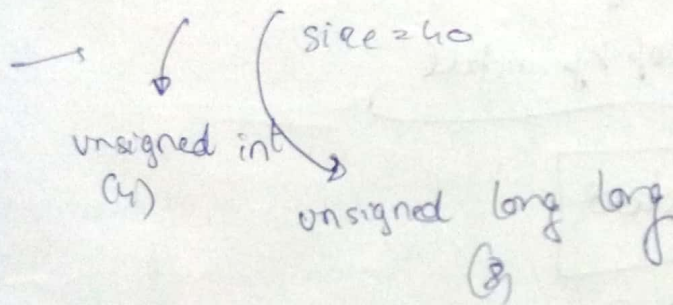 size = 40
unsigned int
(4)
unsigned long long
(8)